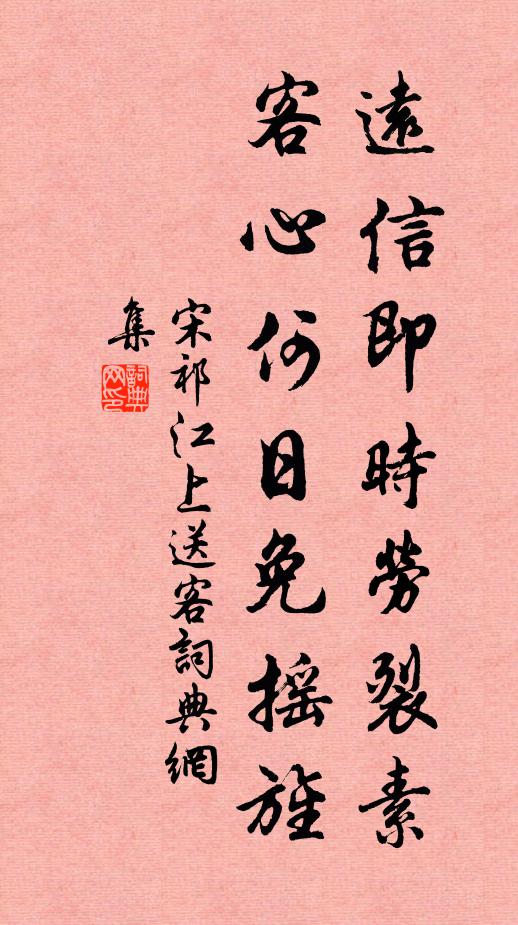 遠信即時勞裂素
客心何日免搖旌
宋祁江上送客詞典網
集
詞典網印